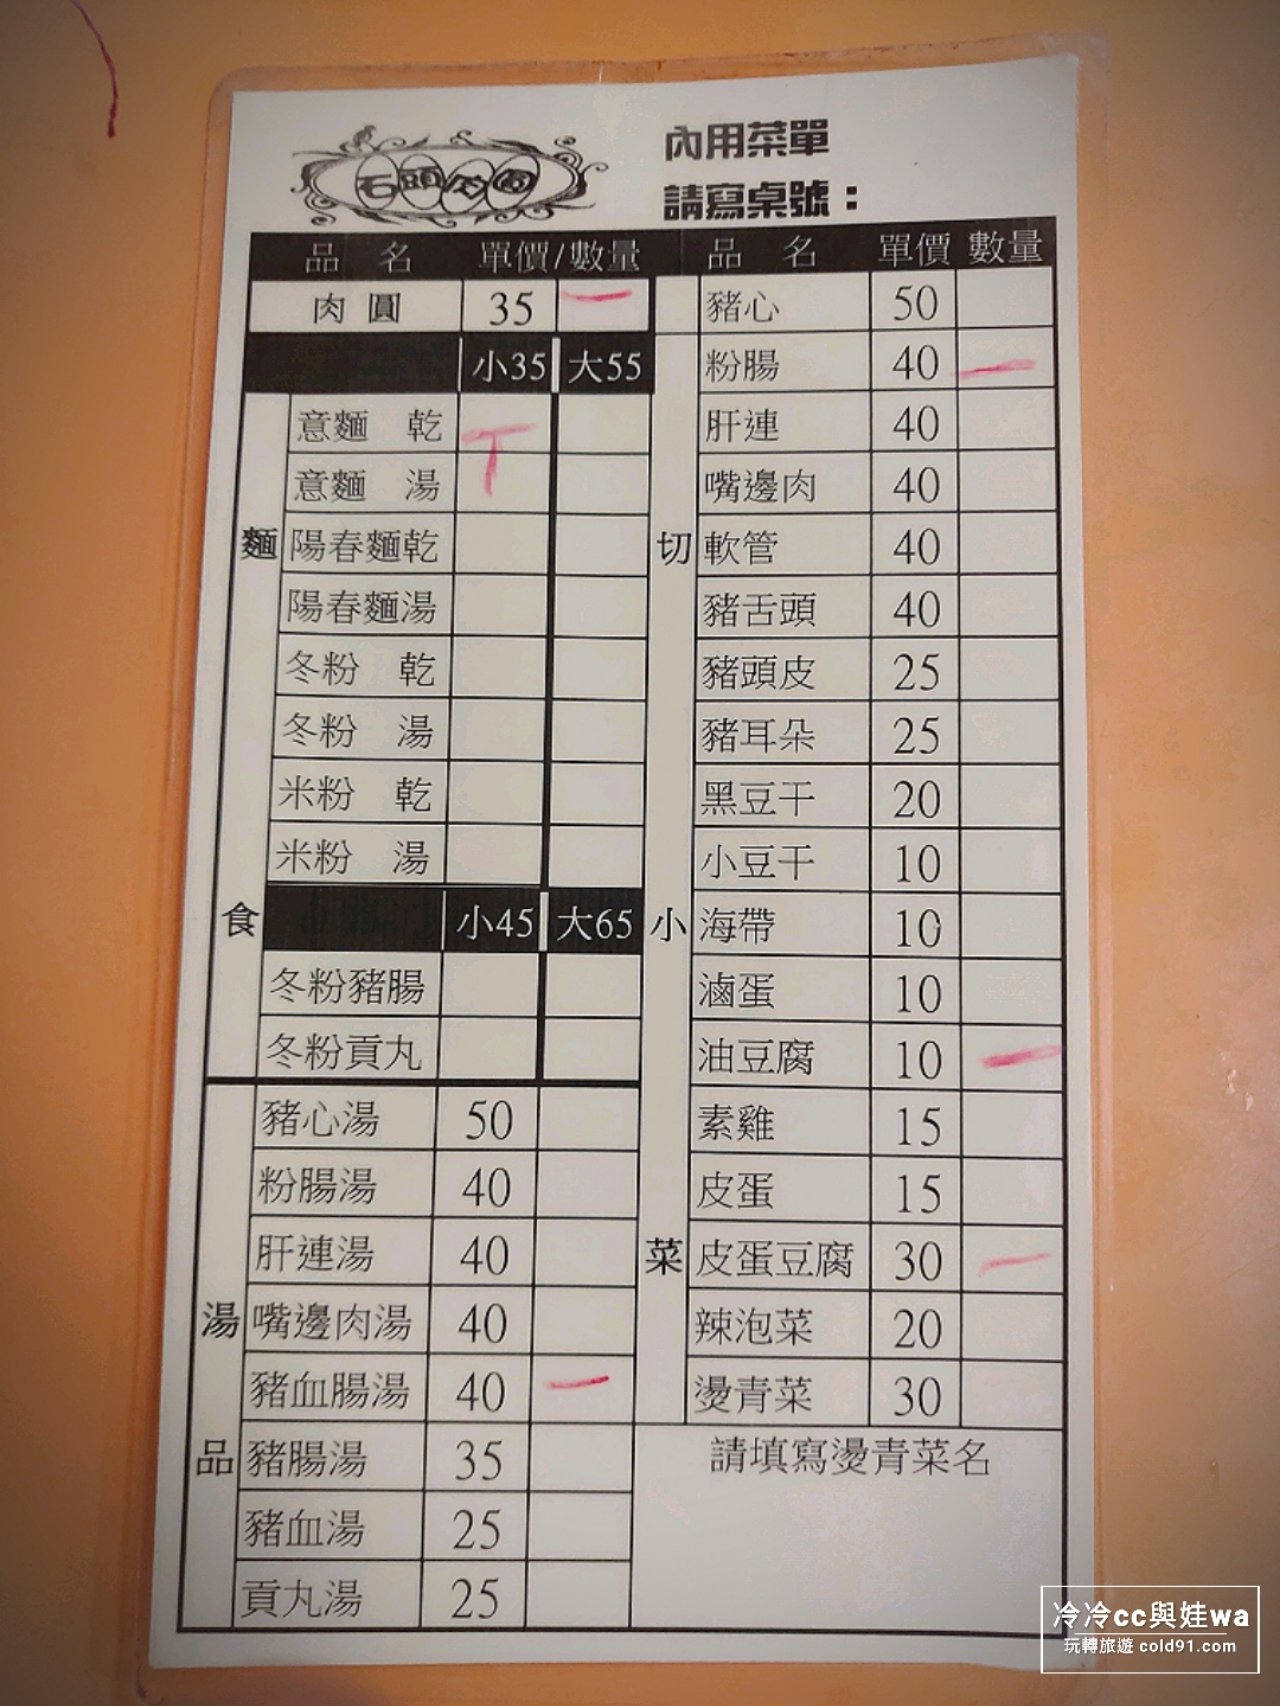 石頭肉圓
內用菜單
請寫桌號：
品 名 單價/數量
肉圓 35
小35 大55
麵食
意麵 乾
意麵 湯
陽春麵乾
陽春麵湯
冬粉 乾
冬粉 湯
米粉 乾
米粉 湯
小45 大65
冬粉豬腸
冬粉貢丸
湯品
豬心湯 50
粉腸湯 40
肝連湯 40
嘴邊肉湯 40
豬血腸湯 40
豬腸湯 35
豬血湯 25
貢丸湯 25
品 名 單價 數量
切小菜
豬心 50
粉腸 40
肝連 40
嘴邊肉 40
軟管 40
豬舌頭 40
豬頭皮 25
豬耳朵 25
黑豆干 20
小豆干 10
海帶 10
滷蛋 10
油豆腐 10
素雞 15
皮蛋 15
皮蛋豆腐 30
辣泡菜 20
燙青菜 30
請填寫燙青菜名
冷冷cc與娃wa
玩轉旅遊 cold91.com